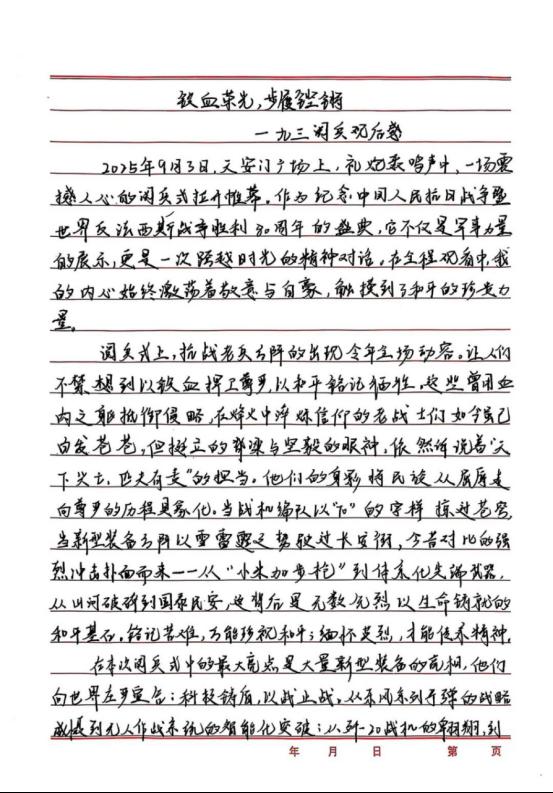 铁血荣光，步履铿锵
一九三阅兵观后感
2025年9月3日，天安门广场上，礼炮轰鸣声中，一场震
撼人心的阅兵式拉开帷幕。作为纪念中国人民抗日战争暨
世界反法西斯战争胜利80周年的盛典，它不仅是军事力量
的展示，更是一次跨越时光的精神对话。在全程观看中，我
的内心始终激荡着敬意与自豪，触摸到了和平的珍贵力
量。
阅兵式上，抗战老兵方阵的出现令年全场动容。让人们
不禁想到以铁血捍卫尊严，以和平铭记牺牲。这些曾用血
肉之躯抵御侵略，在烽火中淬炼信仰的老战士们如今虽已
白发苍苍，但挺立的脊梁与坚毅的眼神，依然诉说着“天
下兴亡，匹夫有责”的担当。他们的身影将民族从屈辱走
向尊严的历程具象化。当战机编队以“70”的字样掠过苍穹，
当新型装备方阵以雷霆之势驶过长安街，今昔对比的强
烈冲击扑面而来——从“小米加步枪”到体系化先端武器，
从山河破碎到国泰民安，这背后是无数先烈以生命铸就的
和平基石。铭记苦难，方能珍视和平；缅怀英烈，才能传承精神。
在本次阅兵式中的最大亮点是大量新型装备的亮相，他们
向世界庄严宣告：科技铸盾，以战止战。从东风系列导弹的战略
威慑到无人作战系统的智能化突破；从歼-20战机的翱翔，到
年 月 日 第 页